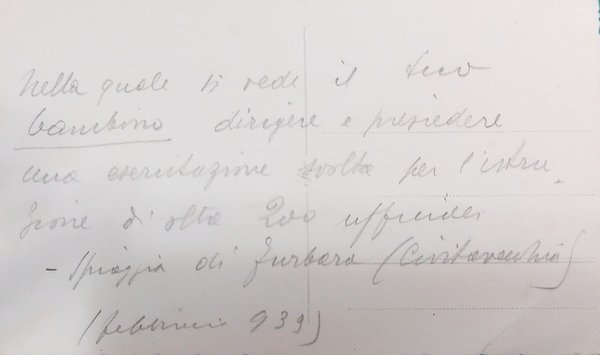 nella quale si vede il tuo
bambino dirigere e presiedere
una esercitazione svolta per l'istru
zione di oltre 200 ufficiali
- Spiaggia di Furbara (Civitavecchia)
(febbraio 939)